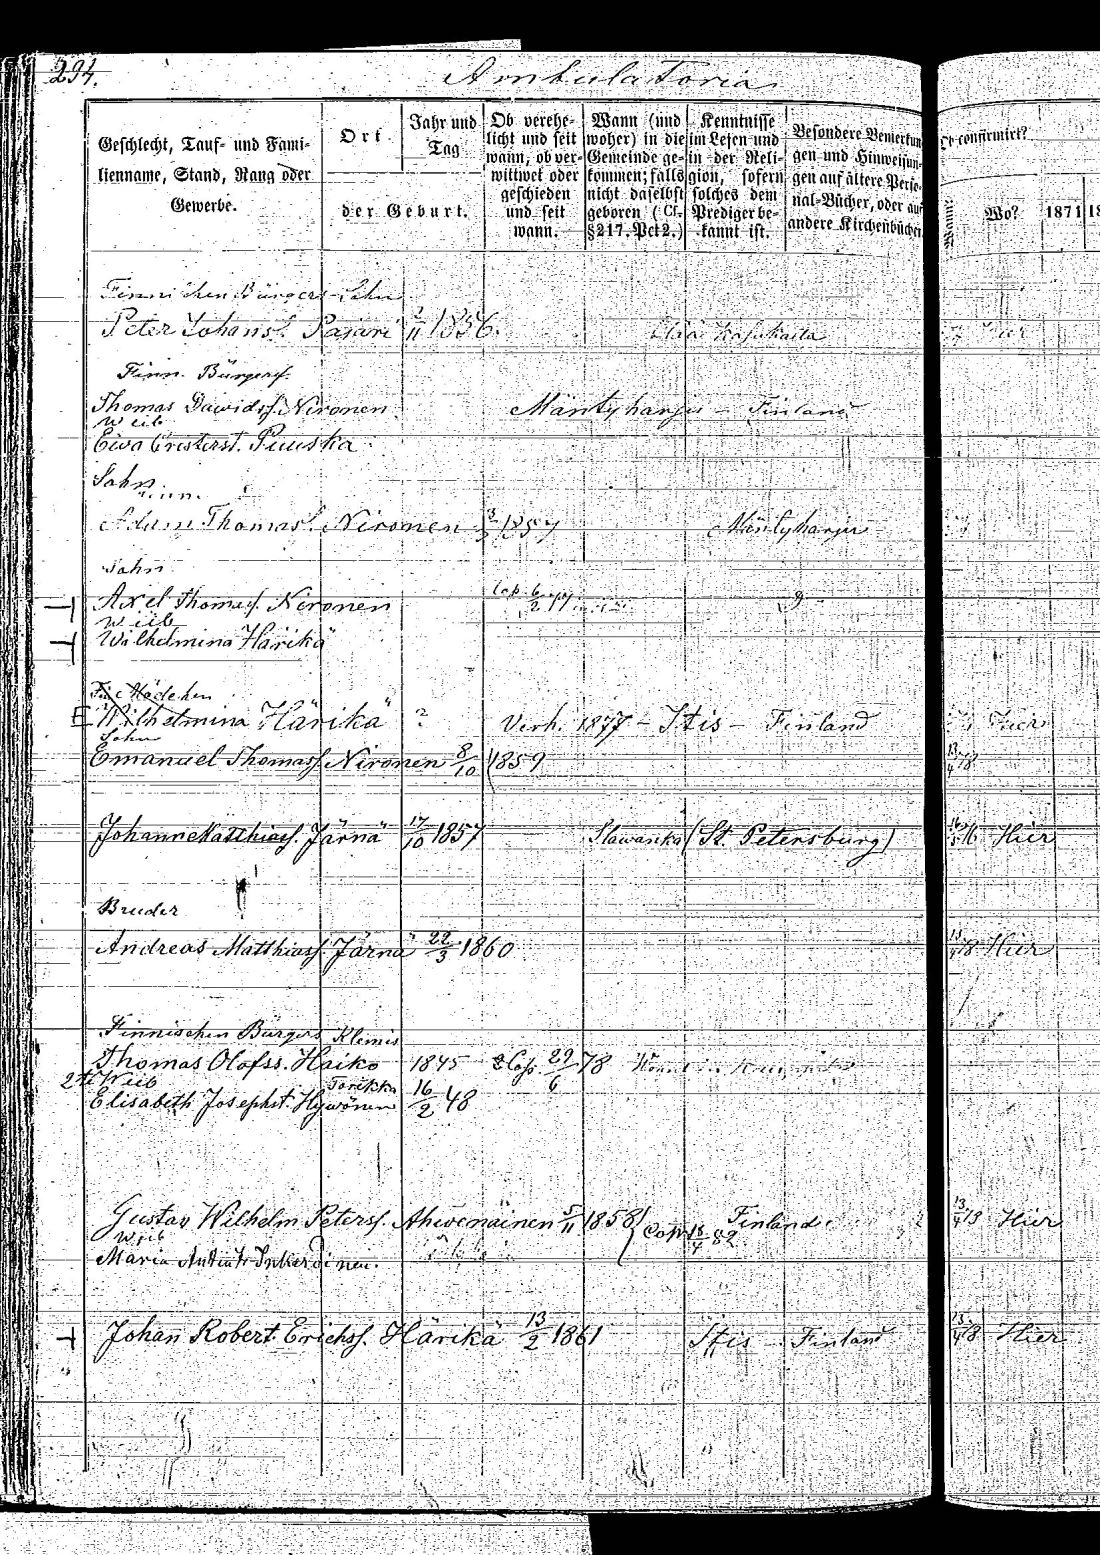 294.
Ambulatoria
Geschlecht, Tauf- und Fami-
lienname, Stand, Rang oder
Gewerbe.
Ort
Jahr und
Tag
der Geburt.
Ob verehe-
licht und seit
wann, ob ver-
wittwet oder
geschieden
und seit
wann.
Wann (und
woher) in die
Gemeinde ge-
kommen; falls
nicht daselbst
geboren (Cf.
§217. Pct 2.)
Kenntnisse
im Lesen und
in der Reli-
gion, sofern
solches dem
Prediger be-
kannt ist.
Besondere Bemerkun-
gen und Hinweisun-
gen auf ältere Perso-
nal-Bücher, oder auf
andere Kirchenbücher
Ob confirmirt?
Wann?
Wo?
1871
Finnischen Bürgers Sohn
Peter Johanss. Pajari 11 1856. Hier
Finn. Bürgers.
Thomas Davidss. Nironen Mäntyharju - Finland
Weib
Ewa Christerst. Puuska
Sohn
Adam Thomass. Nironen 1857 Mäntyharju
Sohn
Axel Thomass. Nironen Cop. 6/2 77
Weib
Wilhelmina Härikä
Fin. Mädchen
E Wilhelmina Härikä ? Verh. 1877 - Itis - Finland Hier
Sohn
Emanuel Thomass. Nironen 8/10 1859 13/4 78
Johann Matthiass. Järnä 17/10 1857 Slawanka (St. Petersburg) 16/5 76 Hier
Bruder
Andreas Matthiass. Järnä 22/3 1860 78 Hier
Finnischen Bürgers Klemis
Thomas Olofss. Haiko 1845 Cop. 29/6 78
2te Weib Torikka
Elisabeth Josephst. Hywönen 16/2 48
Gustav Wilhelm Peterss. Ahwenainen 5/11 1858 Finland 13/4 78 Hier
Weib Cop. 18/4 82
Maria
Johan Robert Erichss. Härikä 13/2 1861 Itis - Finland 78 Hier